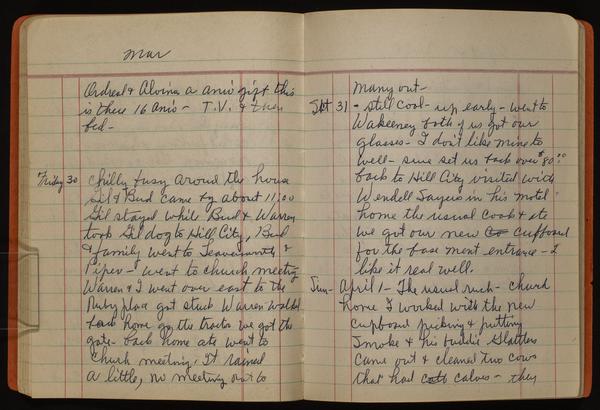 Mar
Ordreal & Alvina a aniv gift this
is there 16 aniv - T.V. & then
bed -
Friday 30 Chilly busy around the house
Gil & Bud came by about 11:00
Gil stayed while Bud & Warren
took Gil dog to Hill City, Bud
& family went to Leavenworth &
Piper - went to church meeting
Warren & I went over east to the
Ruby place got stuck Warren walked
back home got the tractor we got the
gate - back home ate went to
Church meeting. It rained
a little, no meeting not to
many out -
Sat 31 - still cool - up early - went to
Wakeeney both of us got our
glasses - I don't like mine to
well - sure set us back over $80.00
back to Hill City visited with
Wendell Sayers in his motel
home the usual cook & ate
we got our new cupboard
for the basement entrance - I
like it real well.
Sun - April 1 - The usual rush - church
home I worked with the new
cupboard picking & putting
Smoke & his buddie
came out & cleaned two cows
that had calves - they